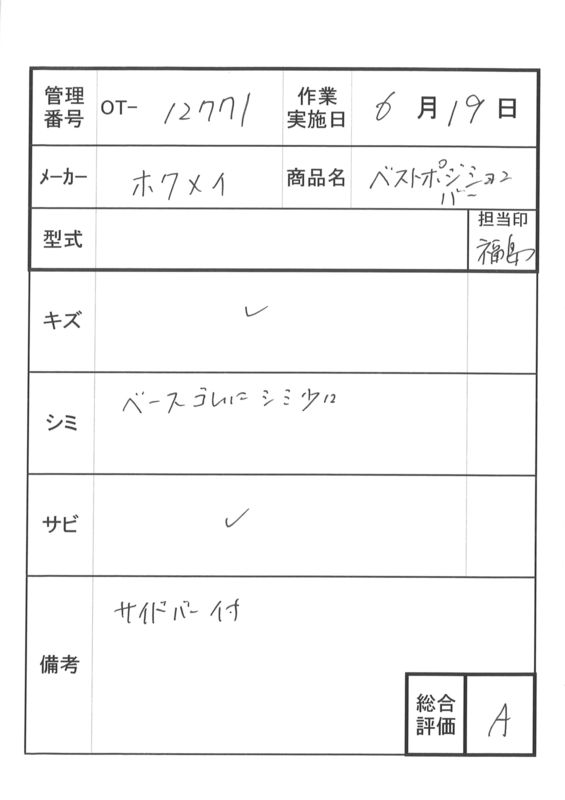 管理番号 OT- 12771 作業実施日 6月19日
メーカー ホクメイ 商品名 ベストポジション
バー
型式 担当印
福島
キズ ✓
シミ ベースゴムにシミ少々
サビ ✓
備考 サイドバー付
総合評価 A